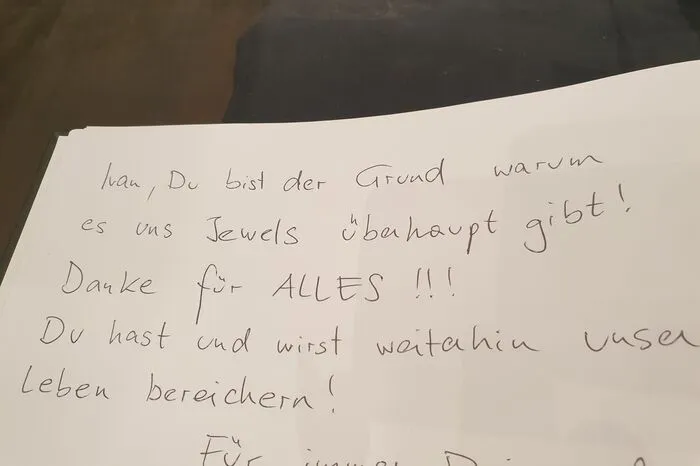 Ivan, Du bist der Grund warum
es uns Jewels überhaupt gibt!
Danke für ALLES !!!
Du hast und wirst weiterhin unser
Leben bereichern!
Für immer